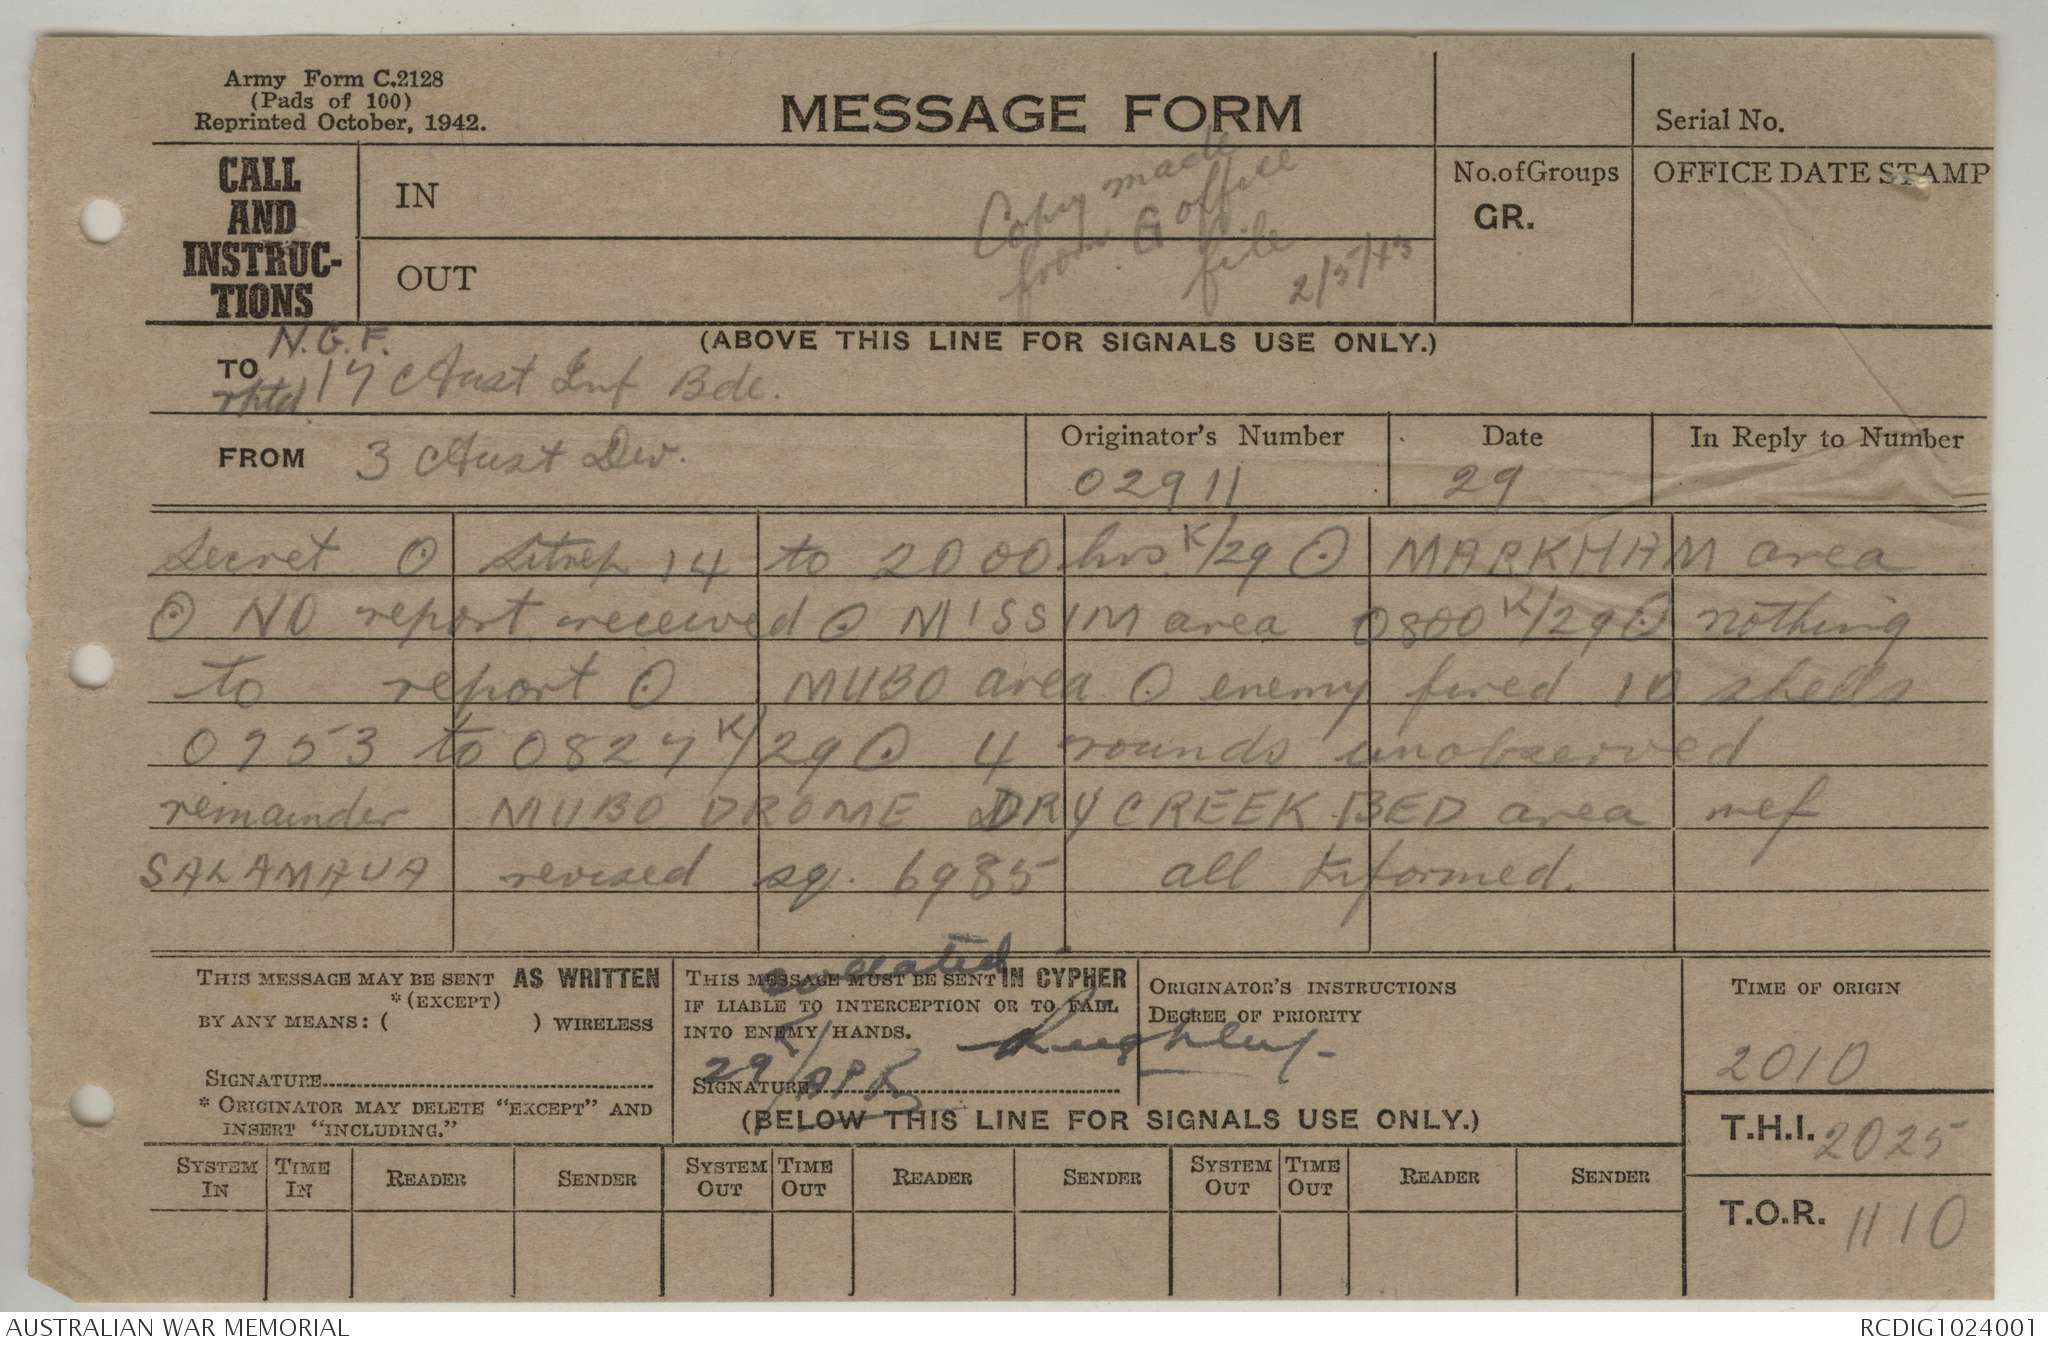 Army Form C.2128
(Pads of 100)
Reprinted October, 1942.
MESSAGE FORM
Serial No.
CALL
AND
INSTRUC-
TIONS
IN
OUT
Copy made
from G office
file
2/5/43
No. of Groups
GR.
OFFICE DATE STAMP
(ABOVE THIS LINE FOR SIGNALS USE ONLY.)
N.G.F.
TO
rptd 17 Aust Inf Bde.
FROM 3 Aust Div.
Originator's Number
02911
Date
29
In Reply to Number
Secret ⊙ Sitrep 14 to 2000 hrs K/29 ⊙ MARKHAM area
⊙ NO report received ⊙ MISSIM area 0800 K/29 ⊙ nothing
to report ⊙ MUBO area ⊙ enemy fired 10 shells
0753 to 0827 K/29 ⊙ 4 rounds unobserved
remainder MUBO DROME DRY CREEK BED area mef
SALAMAUA revised sq. 6985 all informed.
THIS MESSAGE MAY BE SENT AS WRITTEN
*(EXCEPT)
BY ANY MEANS: ( ) WIRELESS
SIGNATURE
* ORIGINATOR MAY DELETE "EXCEPT" AND
INSERT "INCLUDING."
THIS MESSAGE MUST BE SENT IN CYPHER
IF LIABLE TO INTERCEPTION OR TO FALL
INTO ENEMY HANDS.
29
SIGNATURE
ORIGINATOR'S INSTRUCTIONS
DEGREE OF PRIORITY
TIME OF ORIGIN
2010
T.H.I. 2025
T.O.R. 1110
(BELOW THIS LINE FOR SIGNALS USE ONLY.)
SYSTEM IN
TIME IN
READER
SENDER
SYSTEM OUT
TIME OUT
READER
SENDER
SYSTEM OUT
TIME OUT
READER
SENDER
AUSTRALIAN WAR MEMORIAL
RCDIG1024001